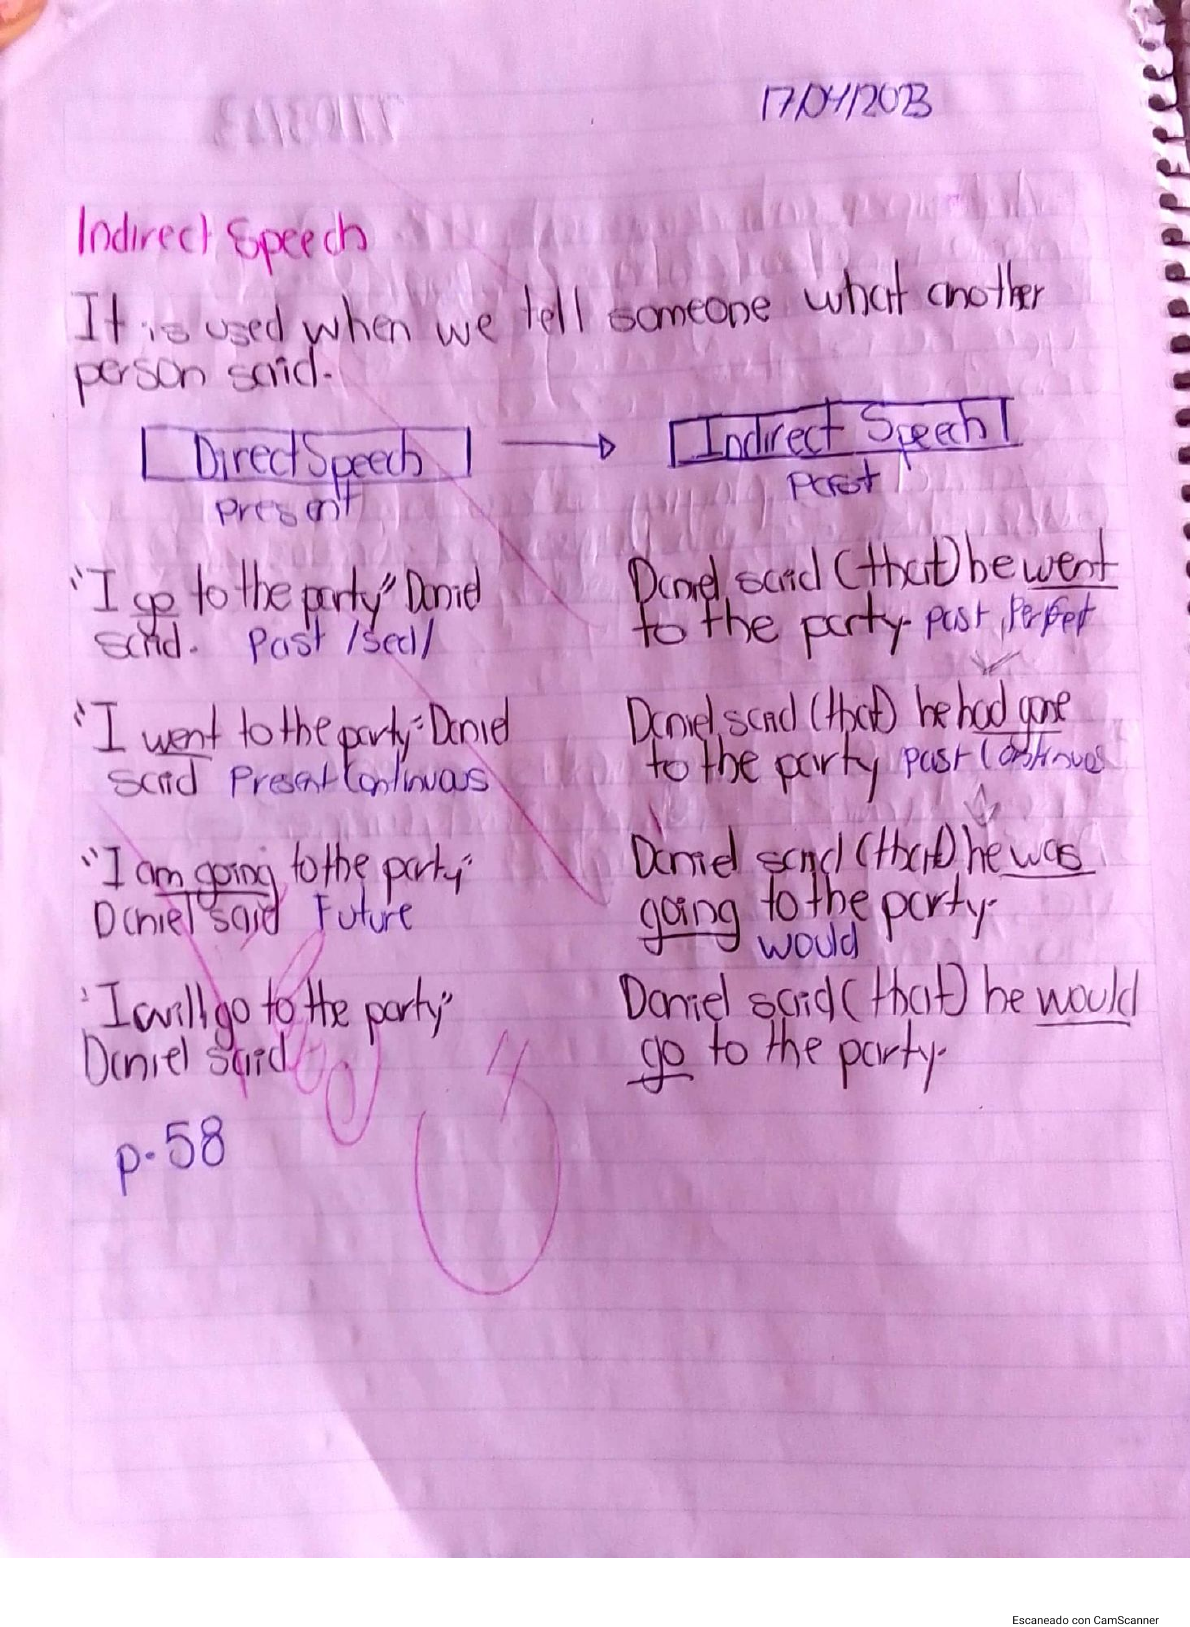 17/04/2023
Indirect Speech
It is used when we tell someone what another
person said.
Direct Speech
Indirect Speech
Present
Past
"I go to the party" Daniel
said. Past /sed/
Daniel said (that) he went
to the party. past perfect
"I went to the party" Daniel
said Present Continuos
Daniel said (that) he had gone
to the party past Continuos
"I am going to the party"
Daniel said Future
Daniel said (that) he was
going to the party.
would
"I will go to the party"
Daniel said
Daniel said (that) he would
go to the party.
p. 58
Escaneado con CamScanner